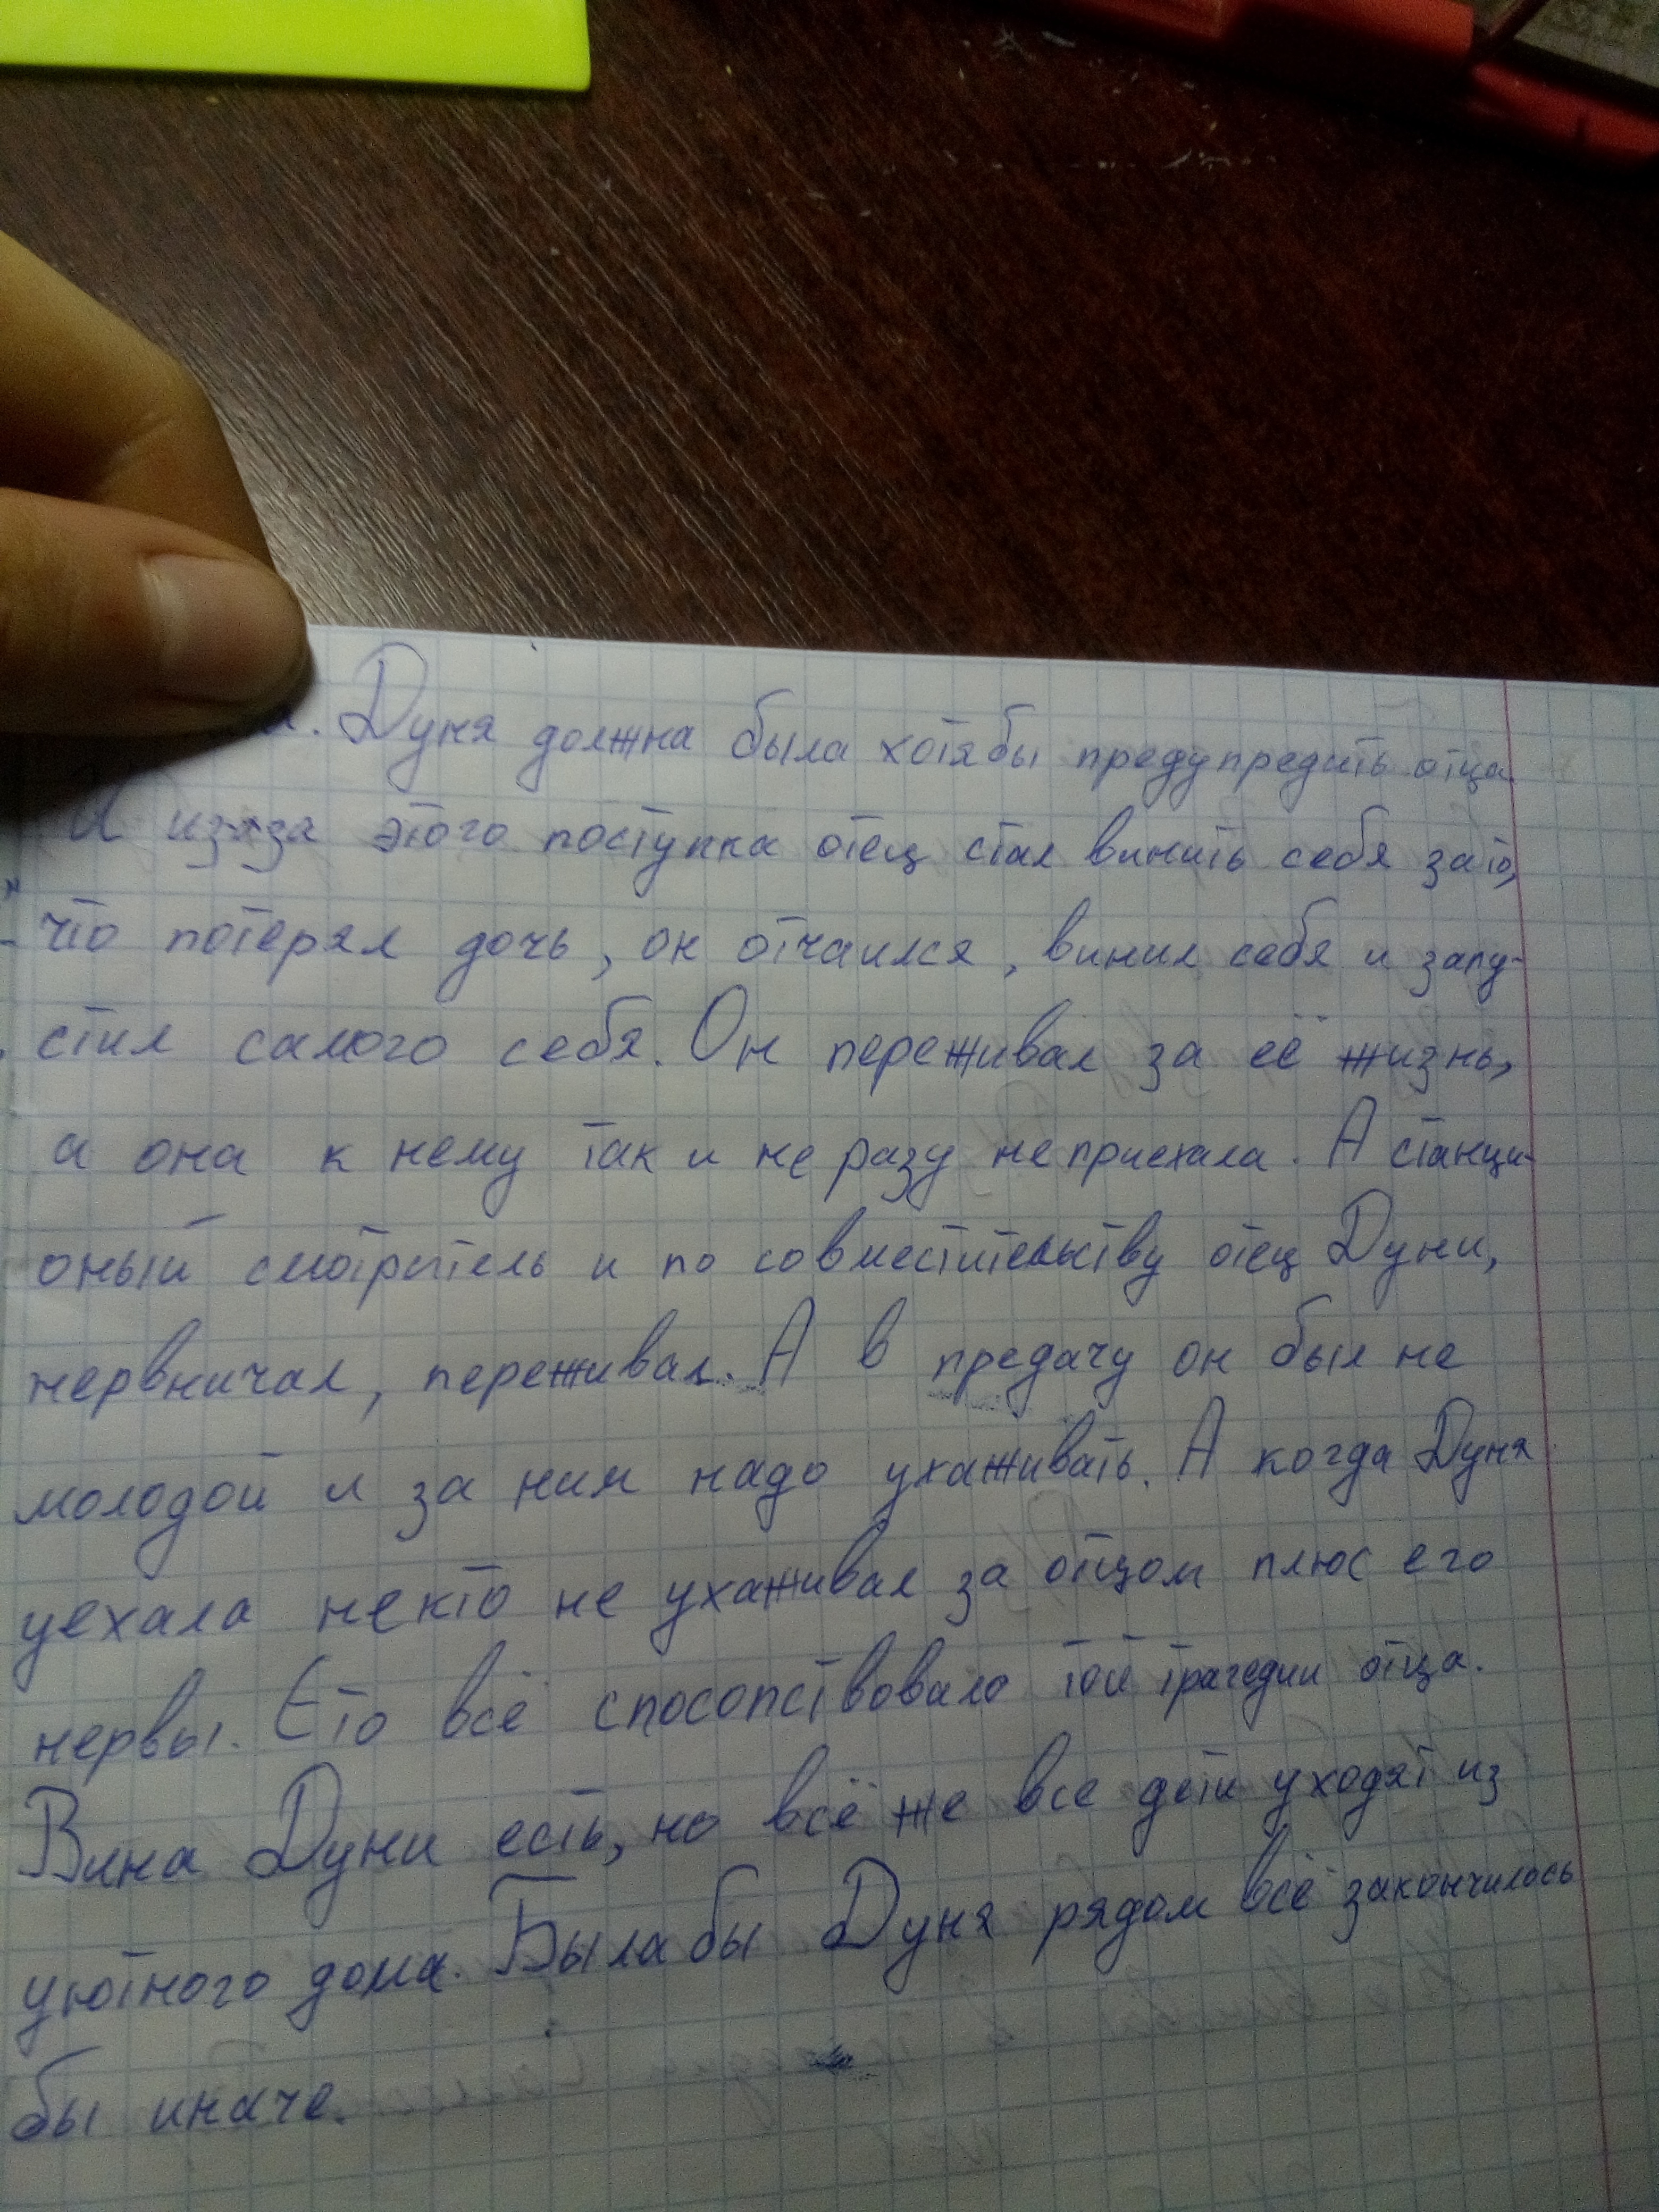 . Дуня должна была хотябы предупредить отца.
И изза этого поступка отец стал винить себя зато,
что потерял дочь, он отчаился, винил себя и запу-
стил самого себя. Он переживал за её жизнь,
а она к нему так и не разу не приехала. А станци-
оный смотритель и по совместительству отец Дуни,
нервничал, переживал. А в предачу он был не
молодой и за ним надо ухаживать. А когда Дуня
уехала некто не ухаживал за отцом плюс его
нервы. Ето всё спосопствовало той трагедии отца.
Вина Дуни есть, но всё же все дети уходят из
уютного дома. Былабы Дуня рядом всё закончилось
бы иначе.